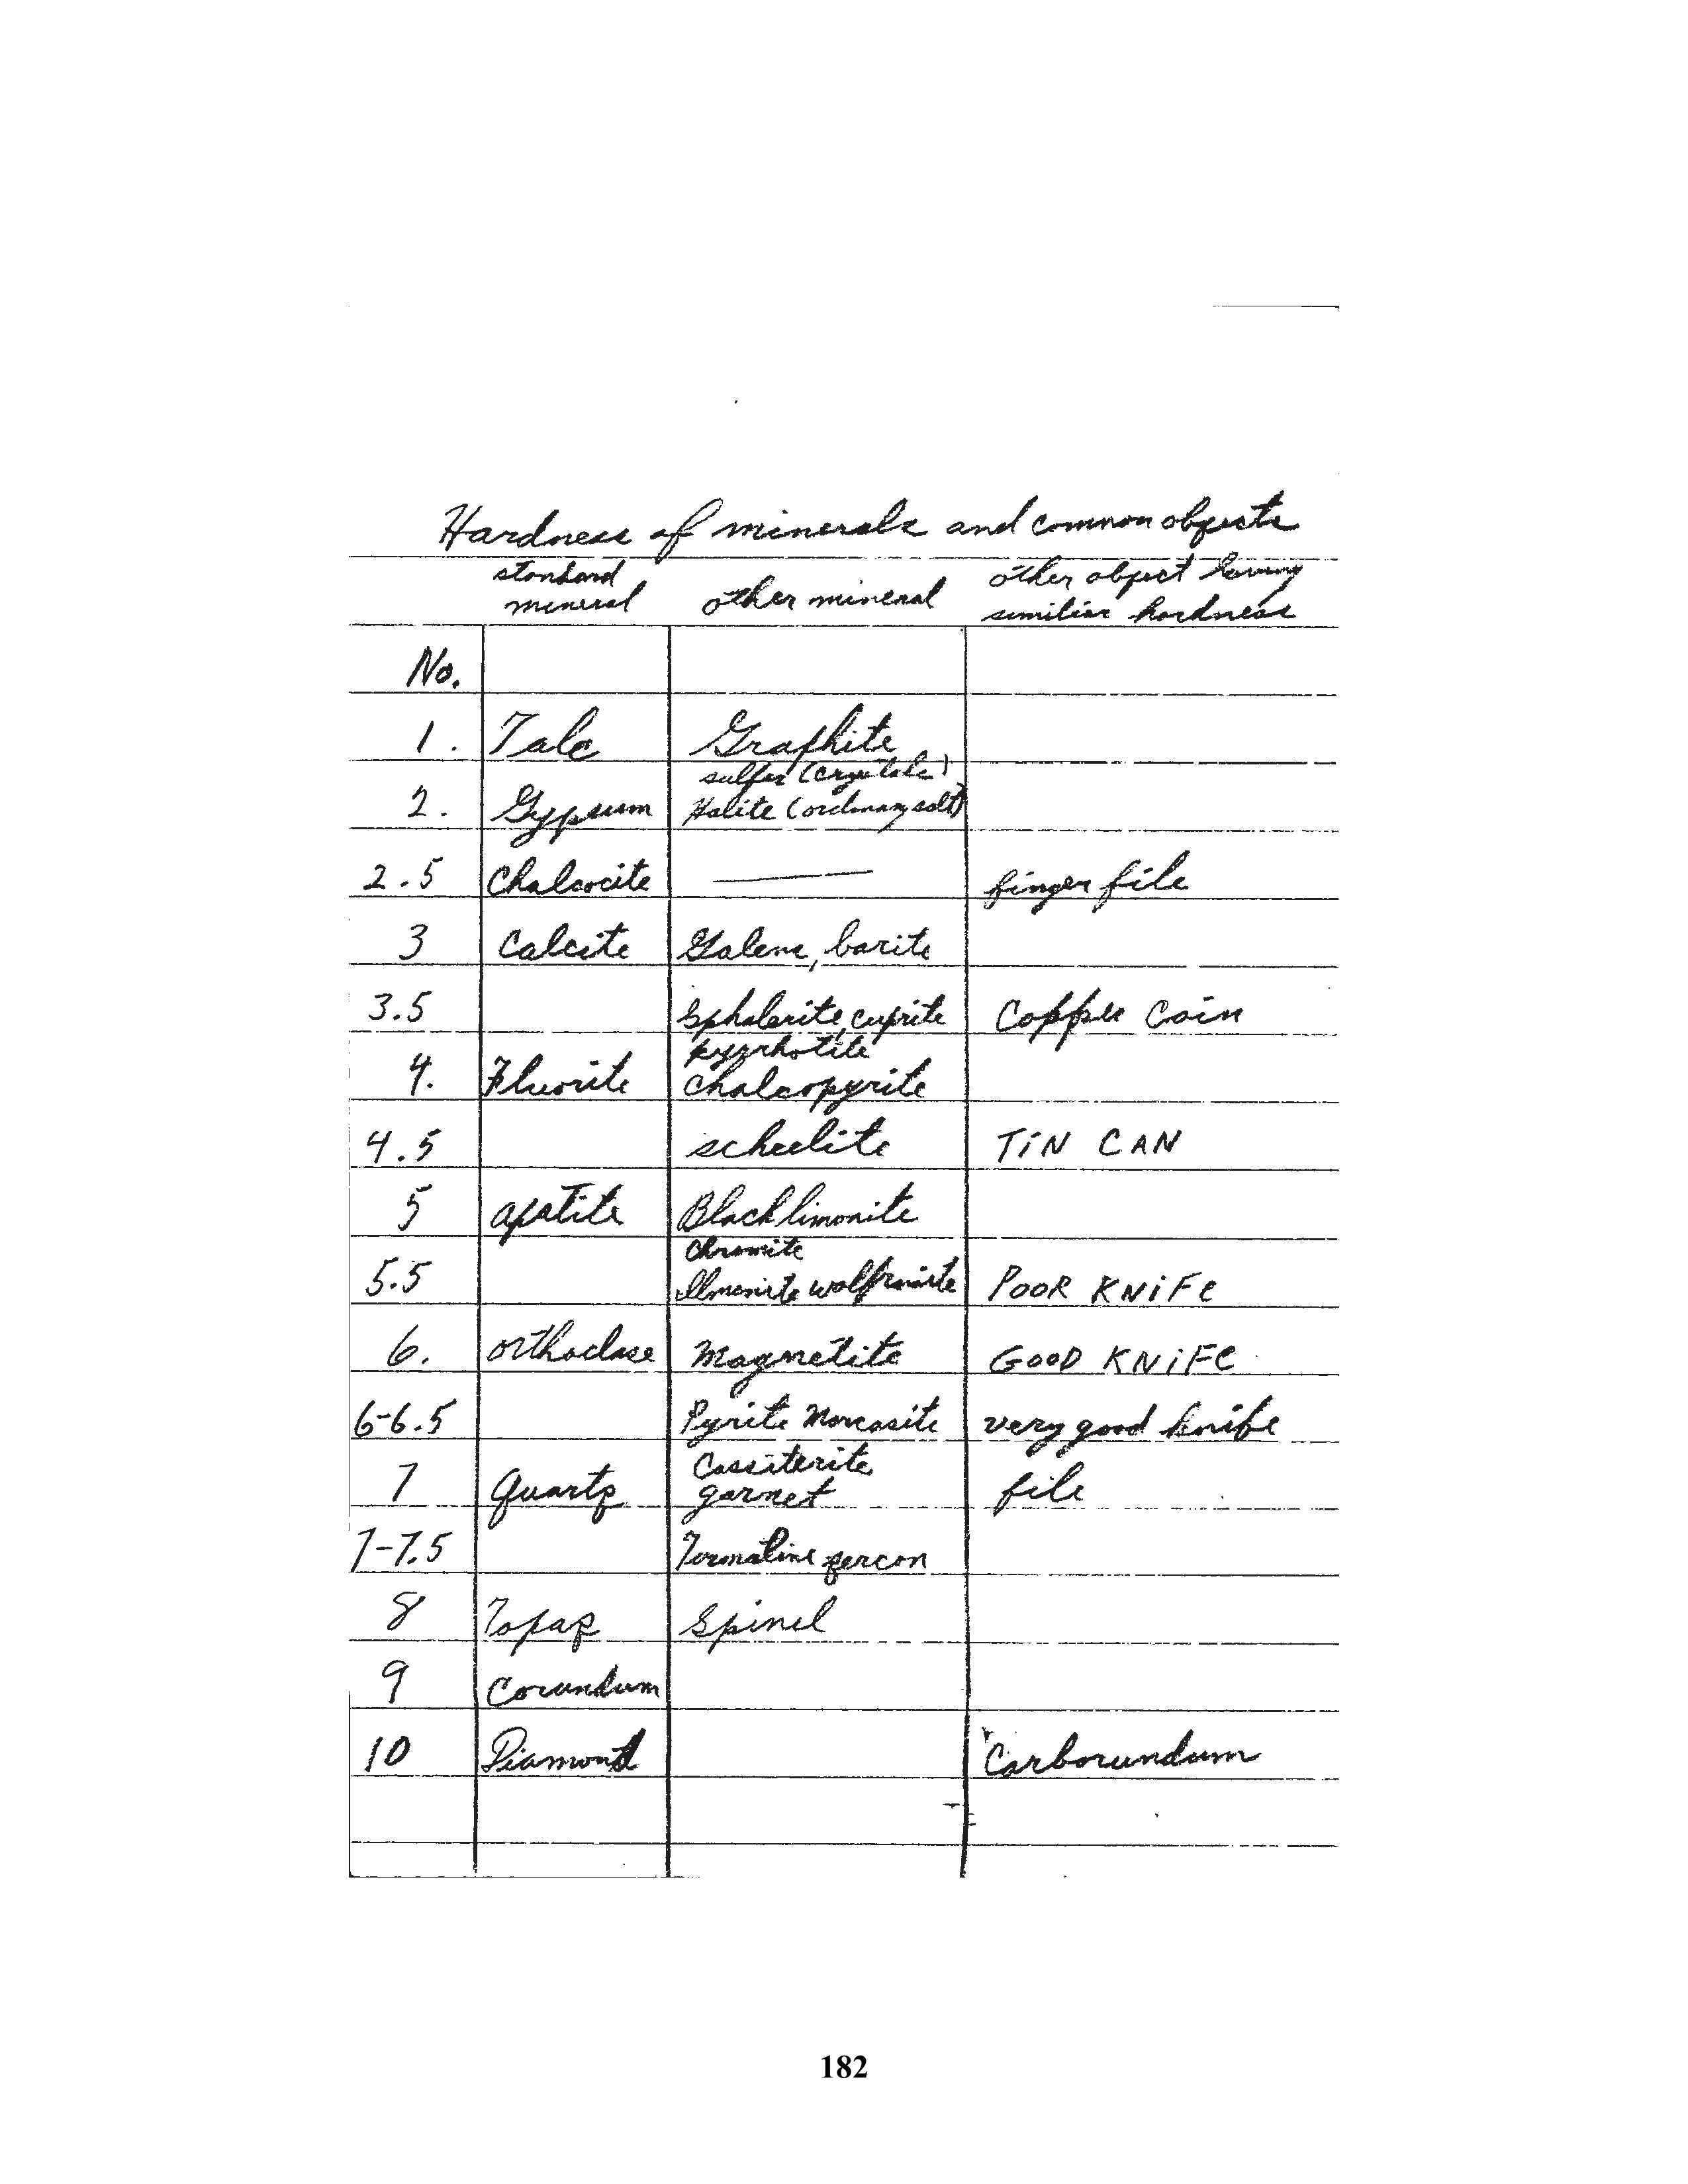 Hardness of minerals and common objects
standard mineral other mineral other object having similiar hardness
No.
1. Talc Graphite
sulfer (crystals)
2. Gypsum Halite (ordinary salt)
2.5 Chalcocite — finger file
3 Calcite Galena, barite
3.5 Sphalerite, cuprite Copper Coin
pyrrhotite
4. Fluorite chalcopyrite
4.5 scheelite TiN CAN
5 apatite Black limonite
Chromite
5.5 Ilmenite POOR KNiFe
6. orthoclase Magnetite GOOD KNiFe
6-6.5 Pyrite Marcasite very good knife
Cassiterite
7 quartz garnet file
7-7.5 Tormaline zercon
8 Topaz Spinel
9 Corundum
10 Diamond Carborundum
182